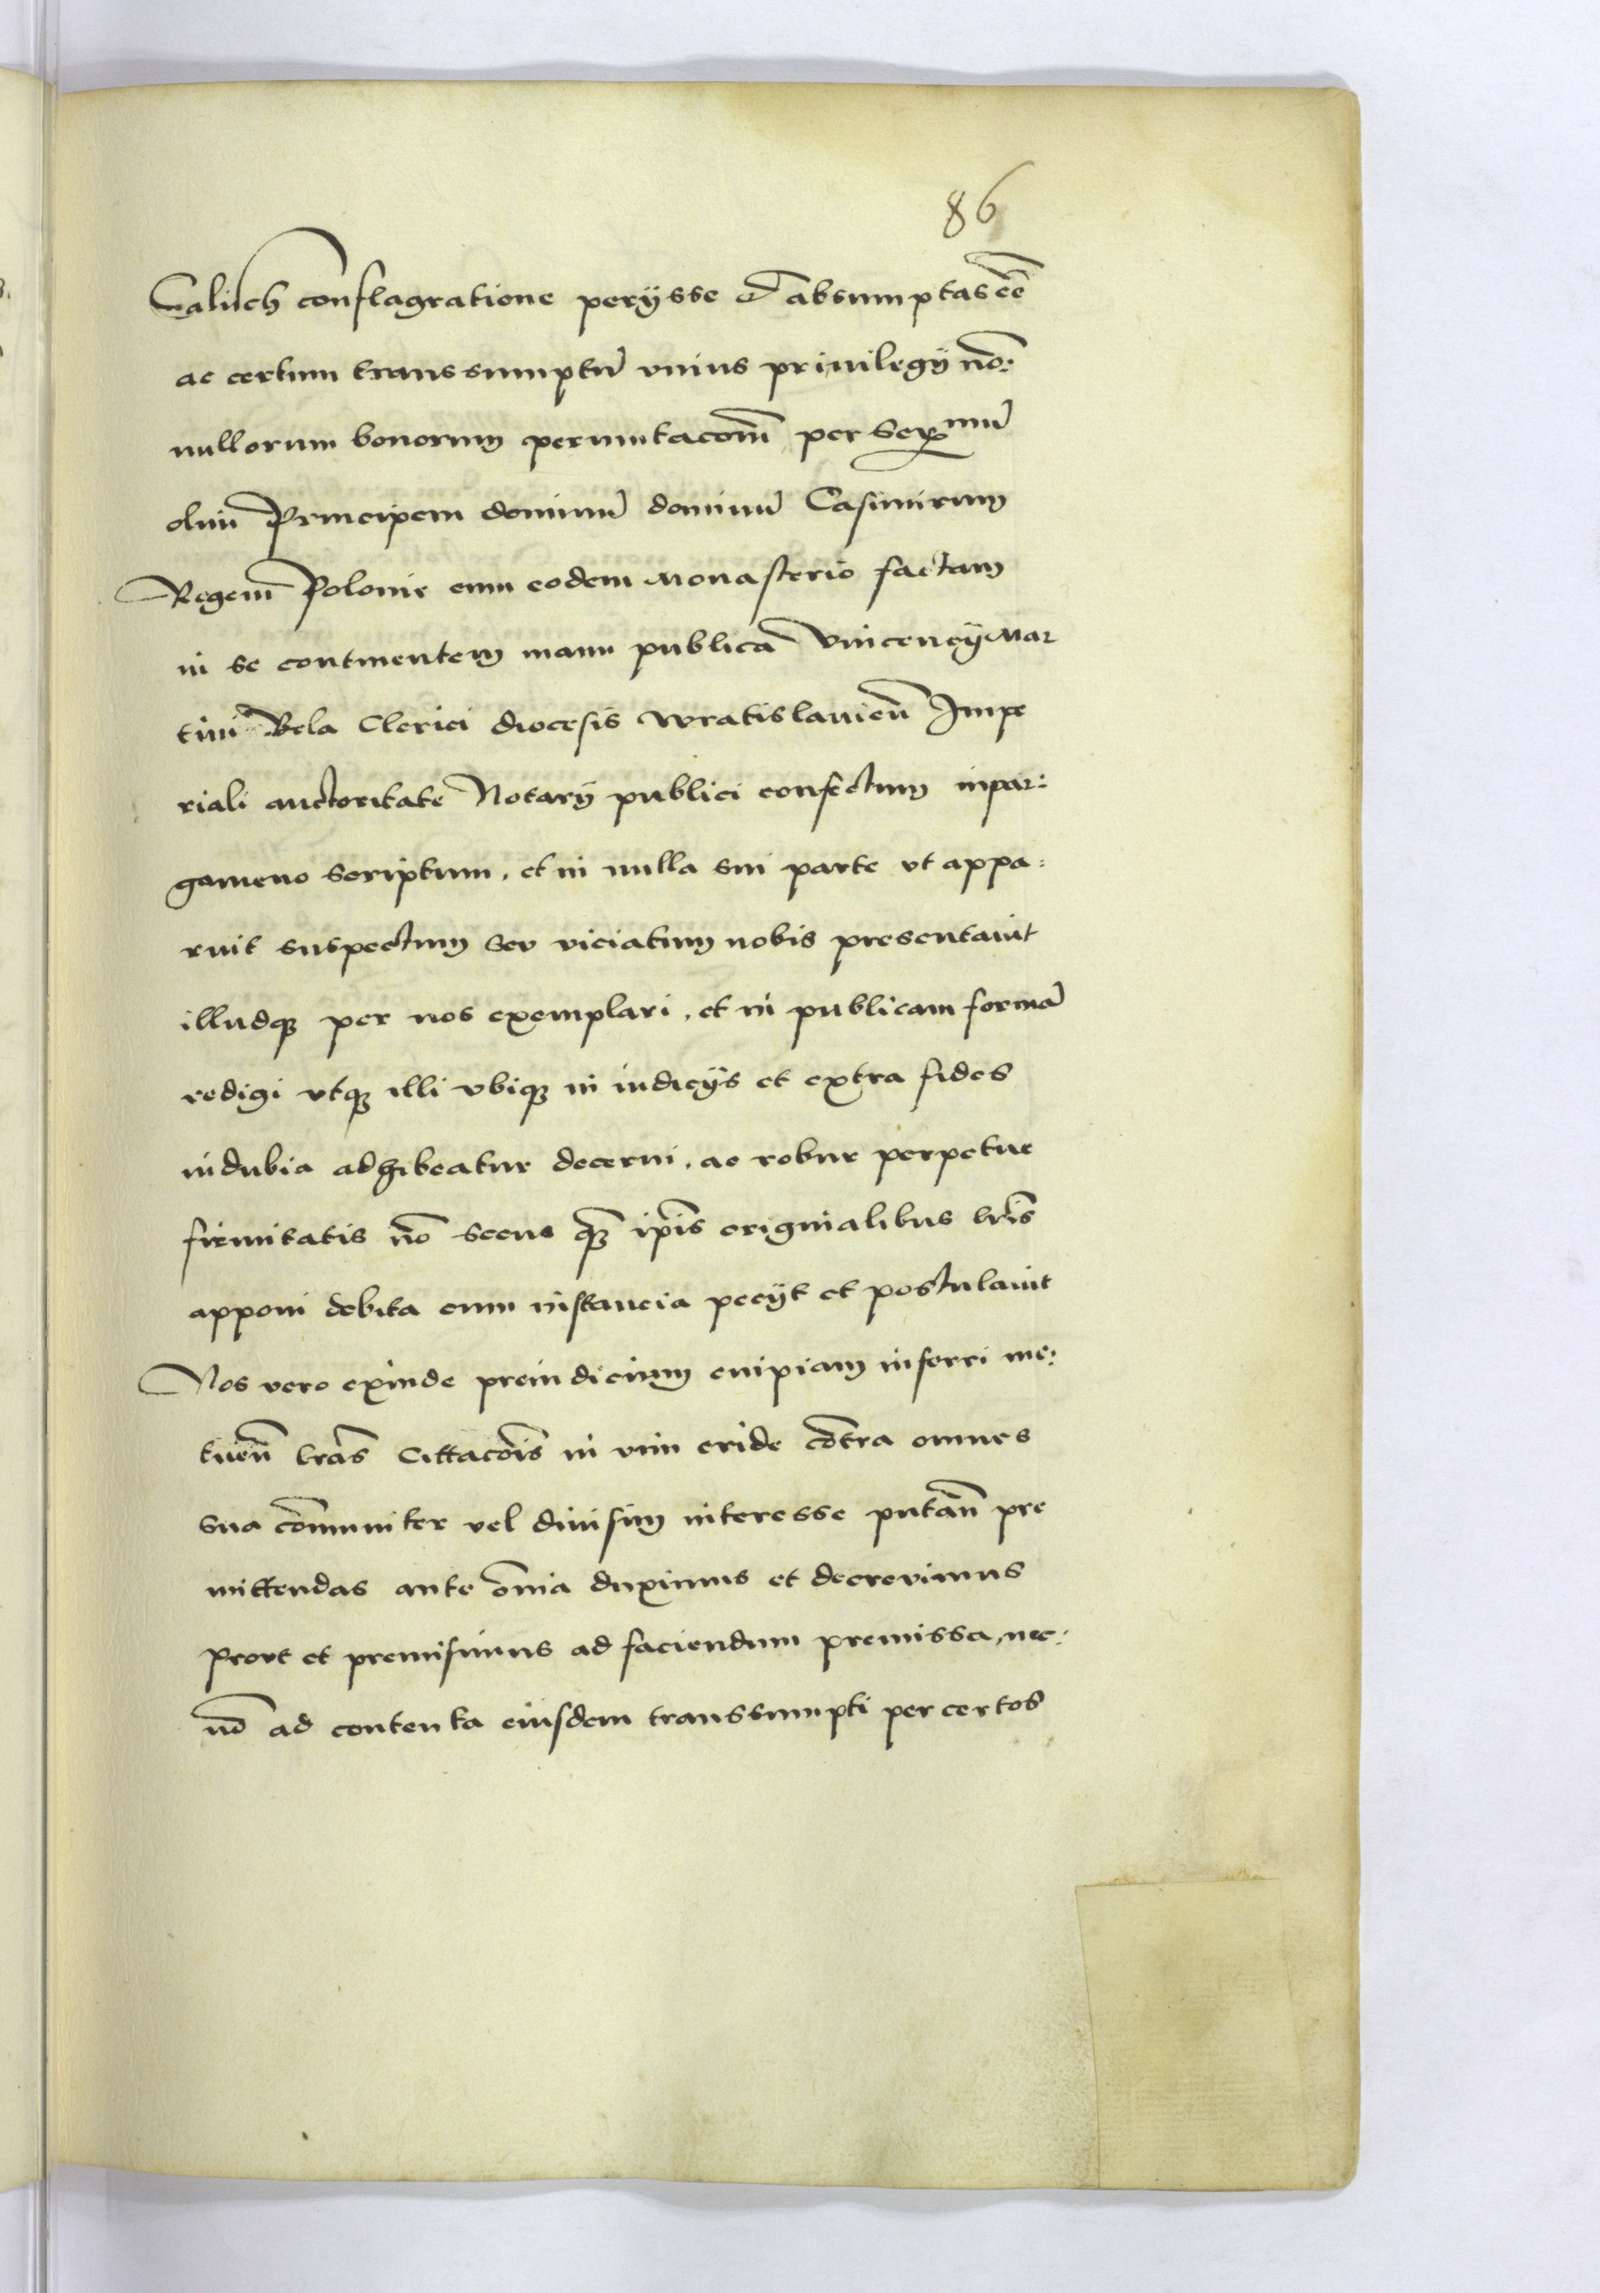 86
Calisch conflagratione perijsse et absumptas eē
ac certum transsumptū vnius priuilegij nō:
nullorum bonorum permutacōm per Serᵐᵘᵐ
olim Principem dominū dominū Casimirum
Regem Polonie cum eodem Monasterio factam
in se continentem manu publica Vincencij Mar
tini Bela Clerici diocesis Wratislauieñ Impe
riali auctoritate Notarij publici confectum in par:
gameno scriptum, et in nulla sui parte vt appa:
ruit suspectum seu viciatum nobis presentauit
illudqꝫ per nos exemplari, et in publicam formā
redigi vtqꝫ illi vbiqꝫ in iudicijs et extra fides
indubia adhibeatur decerni, ac robur perpetue
firmitatis nō secus qꝫ ip̄is originalibus lrīs
apponi debita cum instancia pecijt et postulauit
Nos vero exinde preiudicium cuipiam inferri me:
tueñ lrās Cittacōis in vim cride cōtra omnes
sua cōmuniter vel diuisim interesse putañ pre
mittendas ante ōnia duximus et decreuimus
Prout et premisimus ad faciendum premissa, nec:
nō ad contenta eiusdem transsumpti per certos